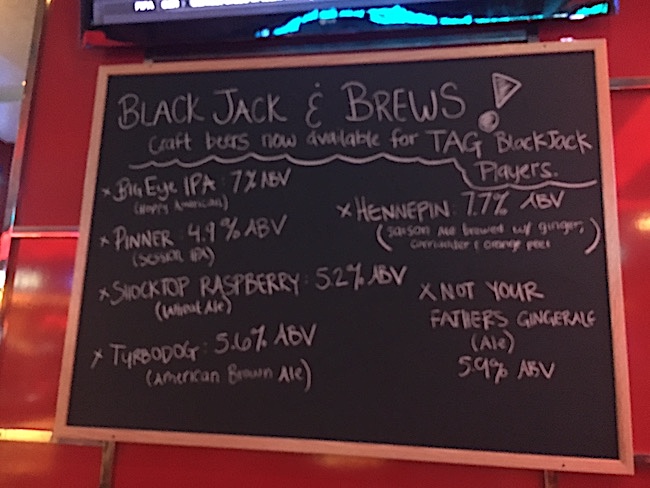 BLACK JACK & BREWS!
Craft beers now available for TAG BlackJack
Players.
x BIG EYE IPA: 7% ABV
(Hoppy American)
x PINNER: 4.9% ABV
(Session IPA)
x SHOCKTOP RASPBERRY: 5.2% ABV
(Wheat Ale)
x TYRBODOG: 5.6% ABV
(American Brown Ale)
x HENNEPIN: 7.7% ABV
(Saison Ale brewed w/ ginger,
coriander & orange peel)
x NOT YOUR
FATHERS GINGERALE
(Ale)
5.9% ABV